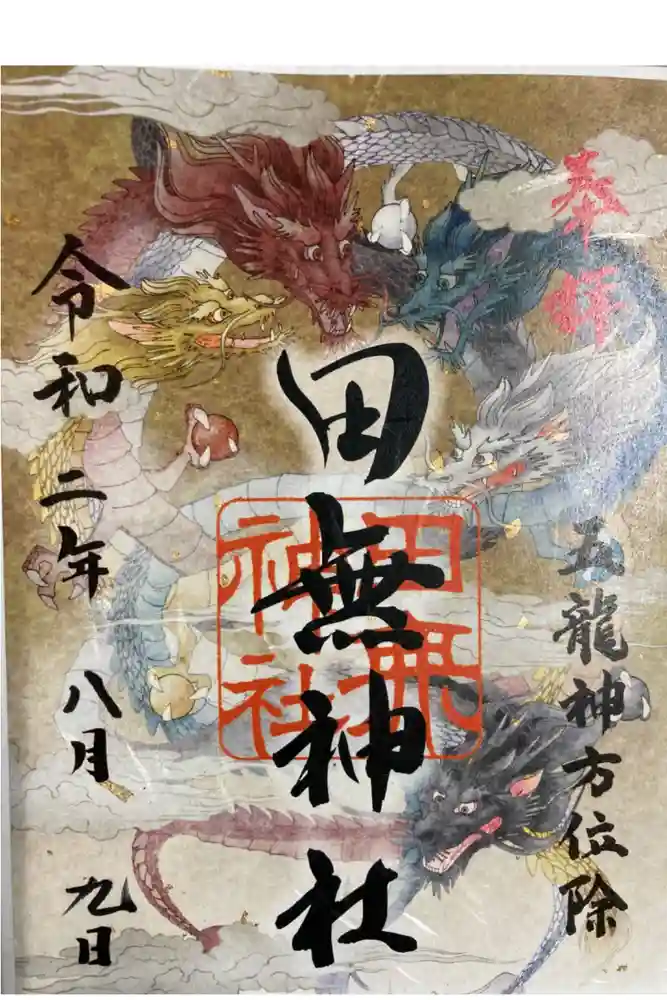 奉拝
五龍神方位除
田無神社
田無
神社
令和二年八月九日